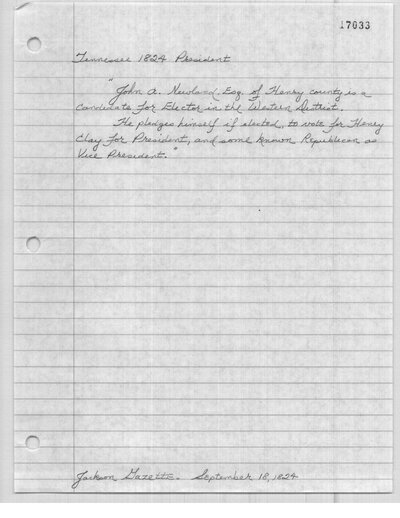 17033
Tennessee 1824 President
"John A. Newland, Esq. of Henry county is a
Candidate for Elector in the Western District.
He pledges himself if elected, to vote for Henry
Clay for President, and some known Republican as
Vice President."
Jackson Gazette. September 18, 1824